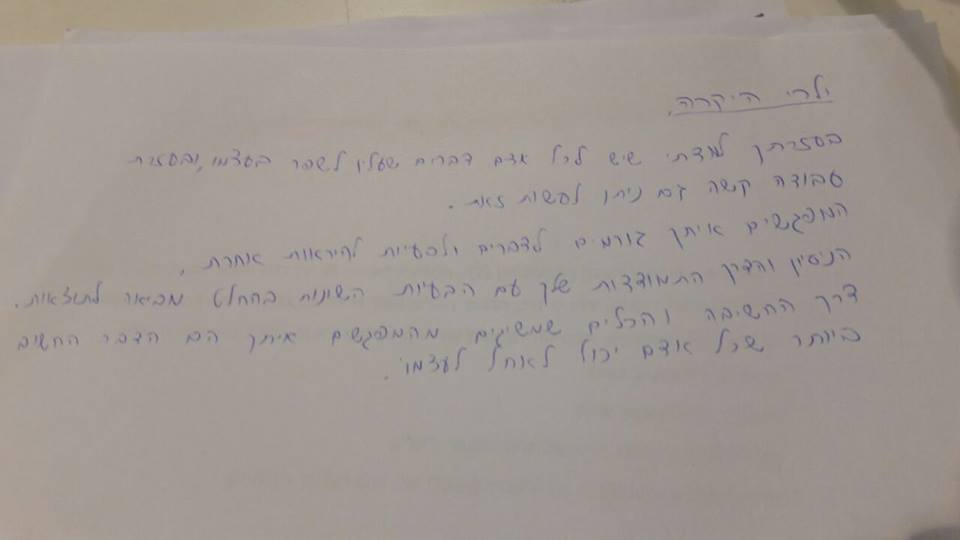 ילרי היקרה,
בעזרתך למדתי שיש לכל אדם דברים שעליו לשפר בעצמו, ובעזרת
עבודה קשה גם ניתן לעשות זאת.
המפגשים איתך גורמים לדברים ולבעיות להיראות אחרת,
הניסיון והדרך התמודדות שלך עם הבעיות השונות בהחלט מביאור לתוצאות.
דרך החשיבה והכלים שמשיגים מהמפגשים איתך הם הדבר החשוב
ביותר שכל אדם יכול לאחל לעצמו.